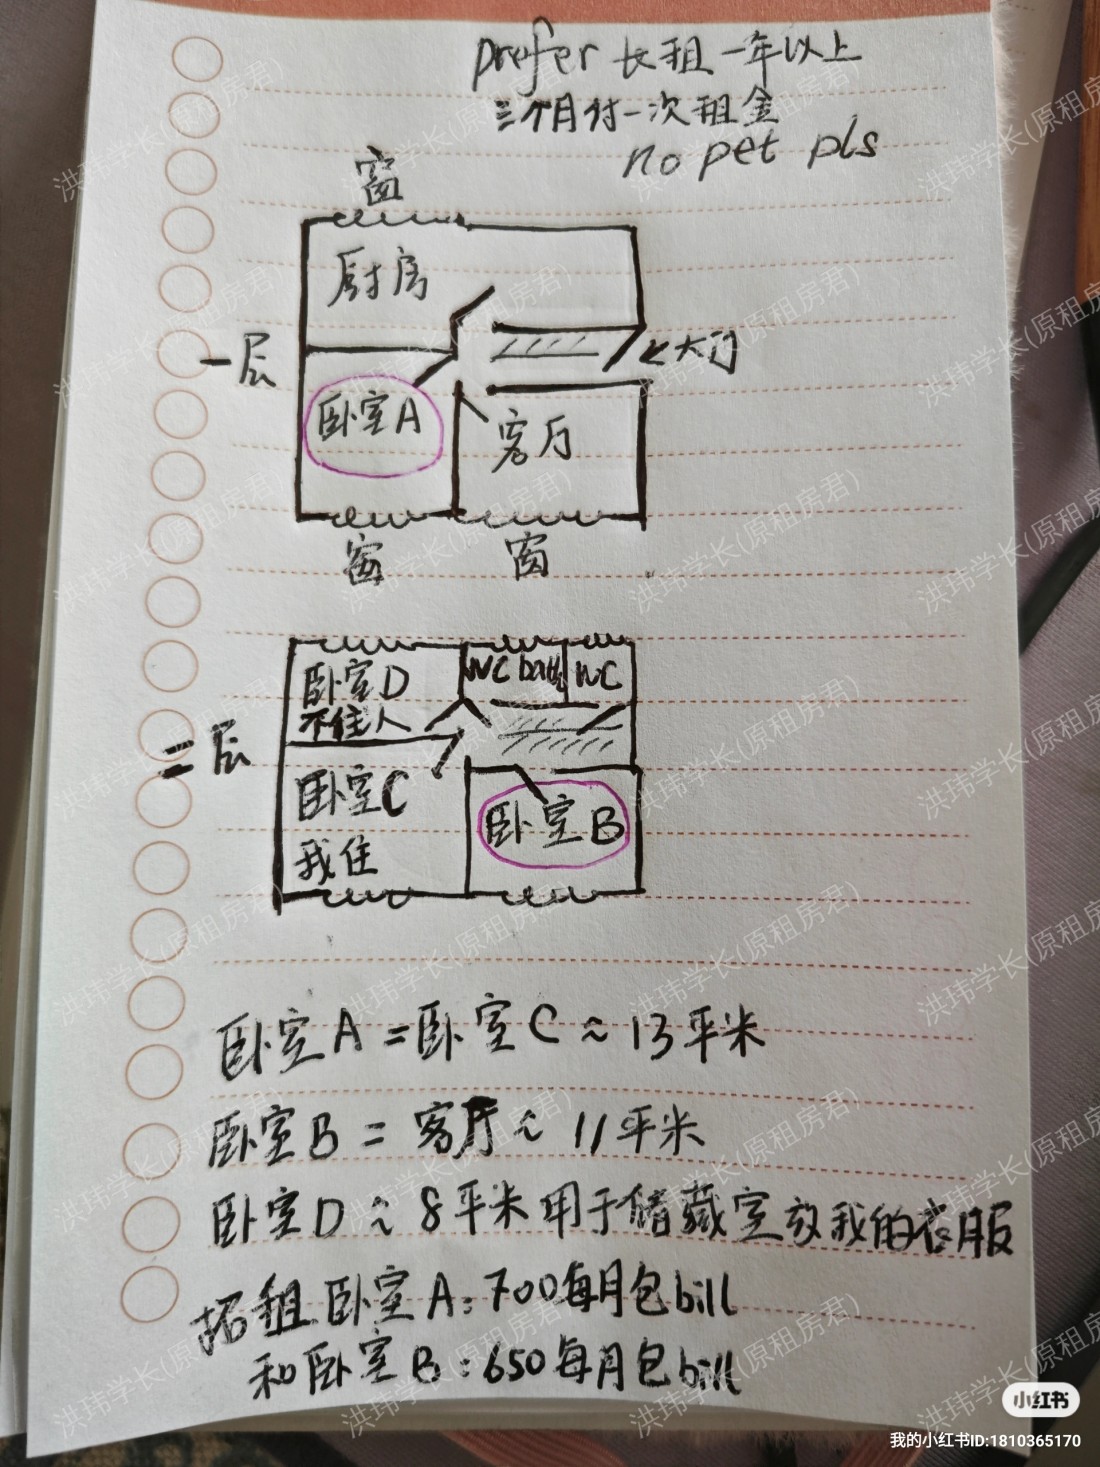 prefer 长租一年以上
三个月付一次租金
no pet pls
窗
厨房
一层
大门
卧室A
客厅
窗
窗
卧室D
不住人
WC bath
WC
二层
卧室C
我住
卧室B
卧室A=卧室C≈13平米
卧室B=客厅≈11平米
卧室D≈8平米用于储藏室放我的衣服
招租卧室A:700每月包bill
和卧室B:650每月包bill
洪玮学长(原租房君)
小红书
我的小红书ID:1810365170